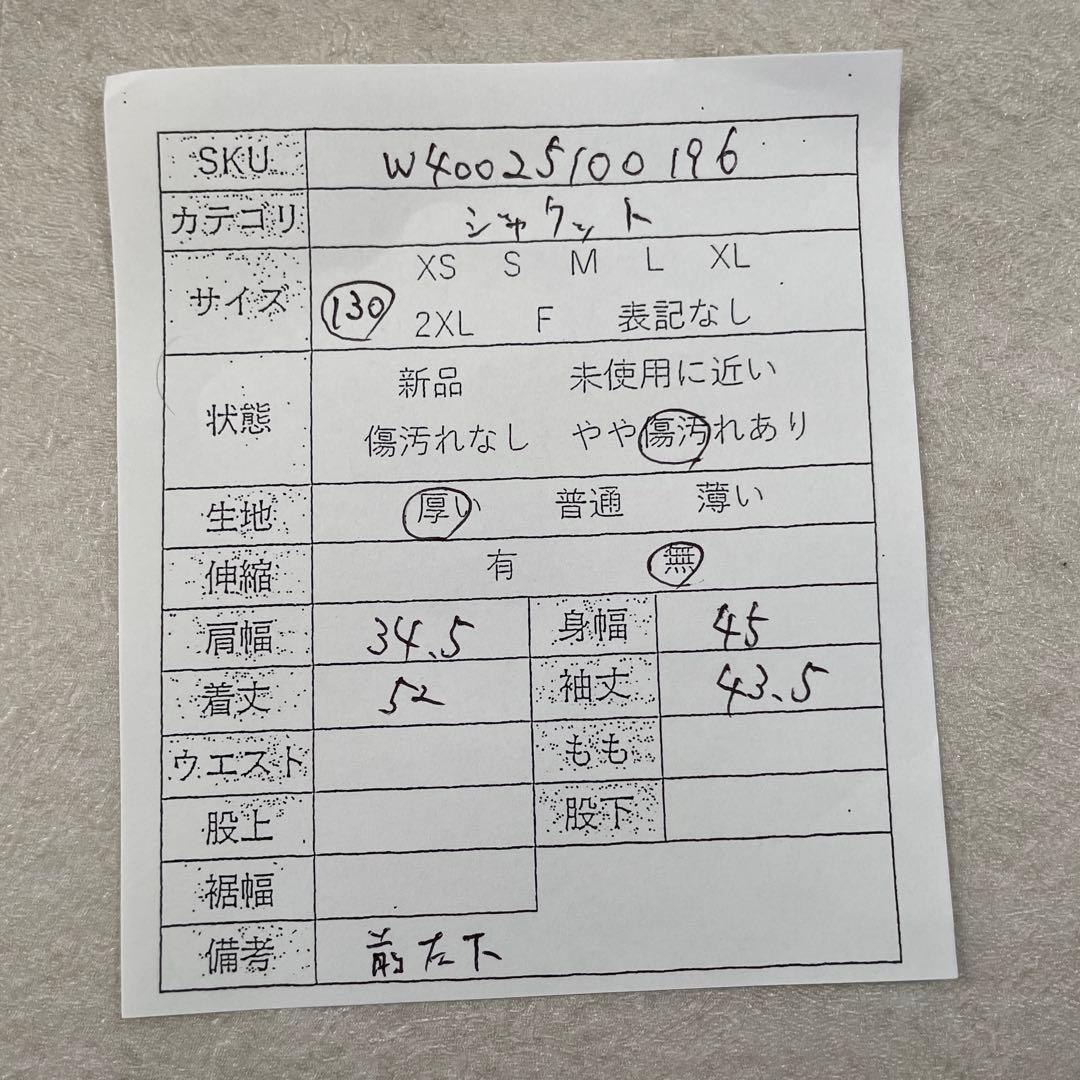 SKU W40025100196
カテゴリ シャケット
サイズ XS S M L XL
130 2XL F 表記なし
状態 新品 未使用に近い
傷汚れなし やや傷汚れあり
生地 厚い 普通 薄い
伸縮 有 無
肩幅 34.5 身幅 45
着丈 52 袖丈 43.5
ウエスト もも
股上 股下
裾幅
備考 前左下